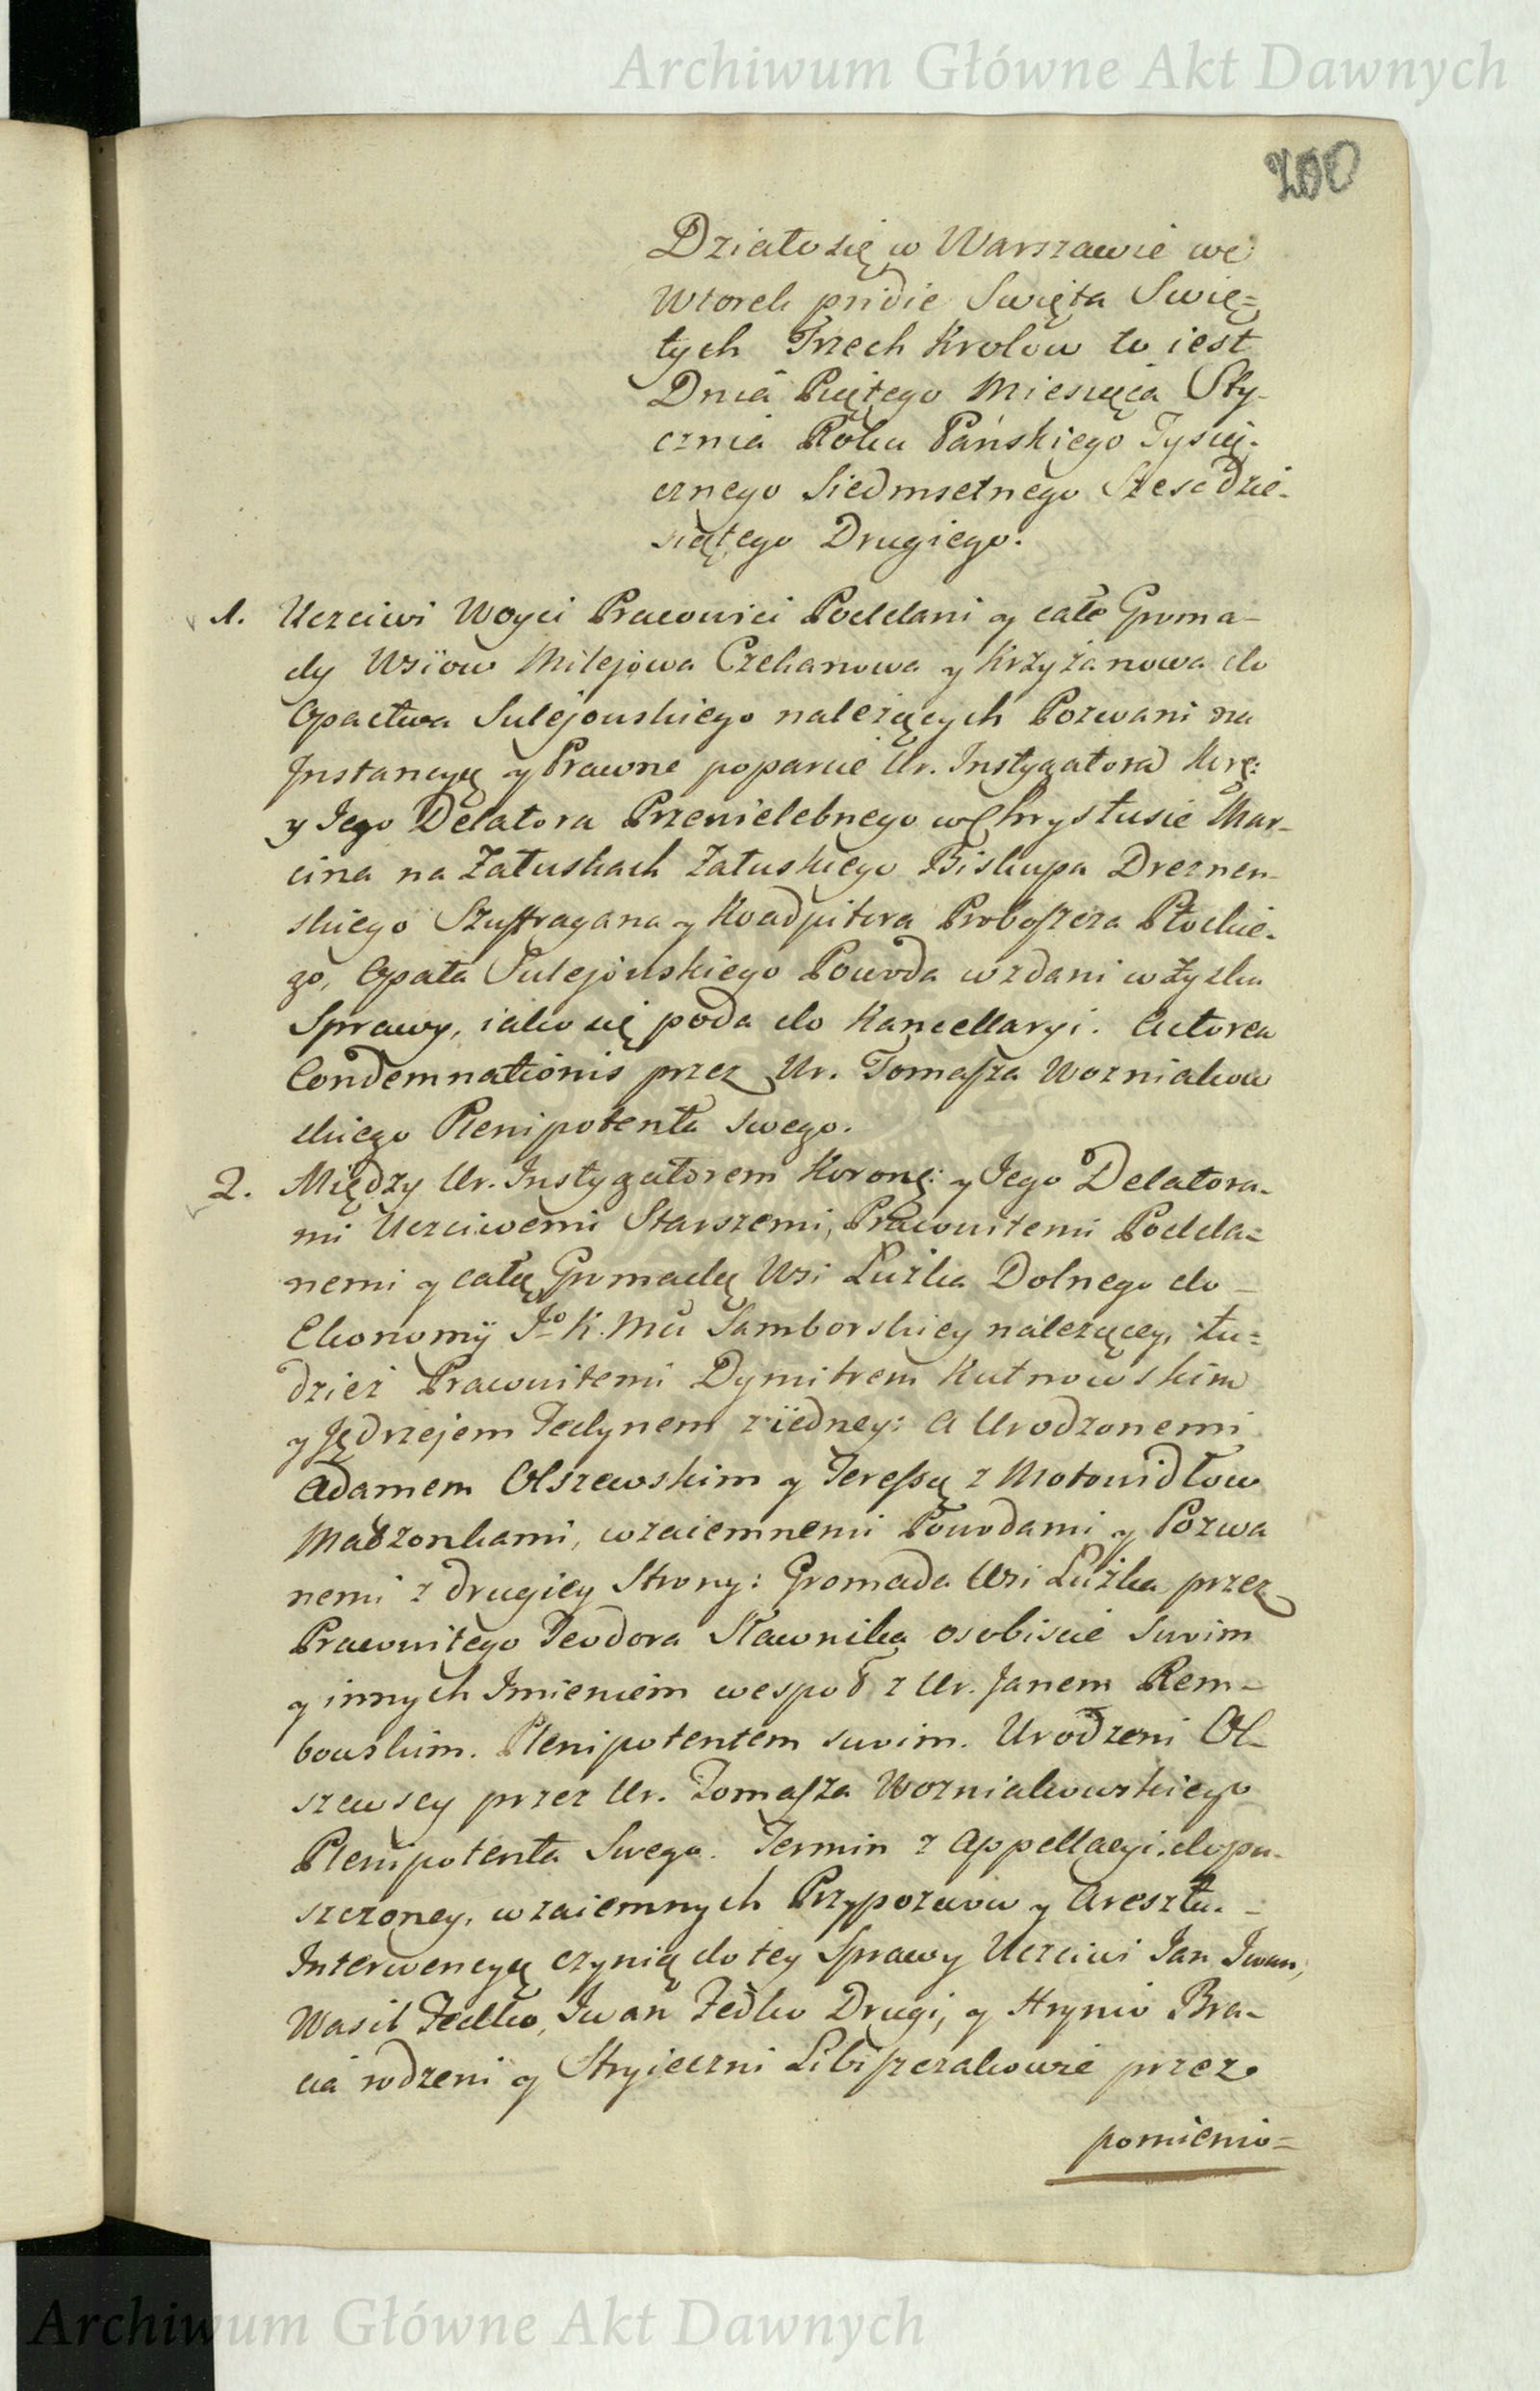 Archiwum Główne Akt Dawnych
200
Działo się w Warszawie we
Wtorek pridie Swięta Swię=
tych Trzech Krolow to iest
Dnia Piątego Miesiąca Sty-
cznia Roku Pańskiego Tysią-
cznego Siedmsetnego Szesćdzie-
siątego Drugiego.
1. Uczciwi Woyci Pracowici Poddani y całe Groma-
dy Wsiow Milejowa Czekanowa y Krzyżanowa do
Opactwa Sulejowskiego należących Pozwani na
Instancyą y Prawne poparcie Ur. Instygatora Korg:
y Jego Delatora Przewielebnego w Chrystusie Mar-
cina na Załuskach Załuskiego Biskupa Drezneń-
skiego Szuffragana y Koadjutora Proboszcza Płockie-
go, Opata Sulejowskiego Powoda wzdani w Zysku
Sprawy, iako się poda do Kancellaryi. Actorea
Condemnationis przez Ur. Tomasza Wozniakow
skiego Plenipotenta swego.
2. Między Ur. Instygatorem Korong: y Jego Delatora-
mi Uczciwemi Starszemi, Pracowitemi Podda=
nemi y całą Gromadą Wsi Łużka Dolnego do
Ekonomij Jo K. Mci Samborskiey należącey, tu=
dzież Pracowitemi Dymitrem Kutnowskim
y Jędrzejem Fedynem z iedney: a Urodzonemi
Adamem Olszewskim y Teressą z Motowidłow
Małżonkami, wzaiemnemi Powodami y Pozwa
nemi z drugiey Strony: Gromada Wsi Łużka przez
Pracowitego Teodora Sławnika osobiscie swoim
y innych Imieniem wespoł z Ur. Janem Rem-
bowskim. Plenipotentem swoim. Urodzeni Ol-
szewscy przez Ur. Tomasza Wozniakowskiego
Plenipotenta Swego. Termin z Appellacyi dopu-
szczoney, wzaiemnych Przypozwow y Aresztu.
Interwencyą czynią do tey Sprawy Uczciwi Jan Iwan,
Wasil Fedko, Iwan Fedko Drugi, y Hrynio Bra-
cia rodzeni y Stryieczni Libiszczakowie przez
pomienio=
Archiwum Główne Akt Dawnych